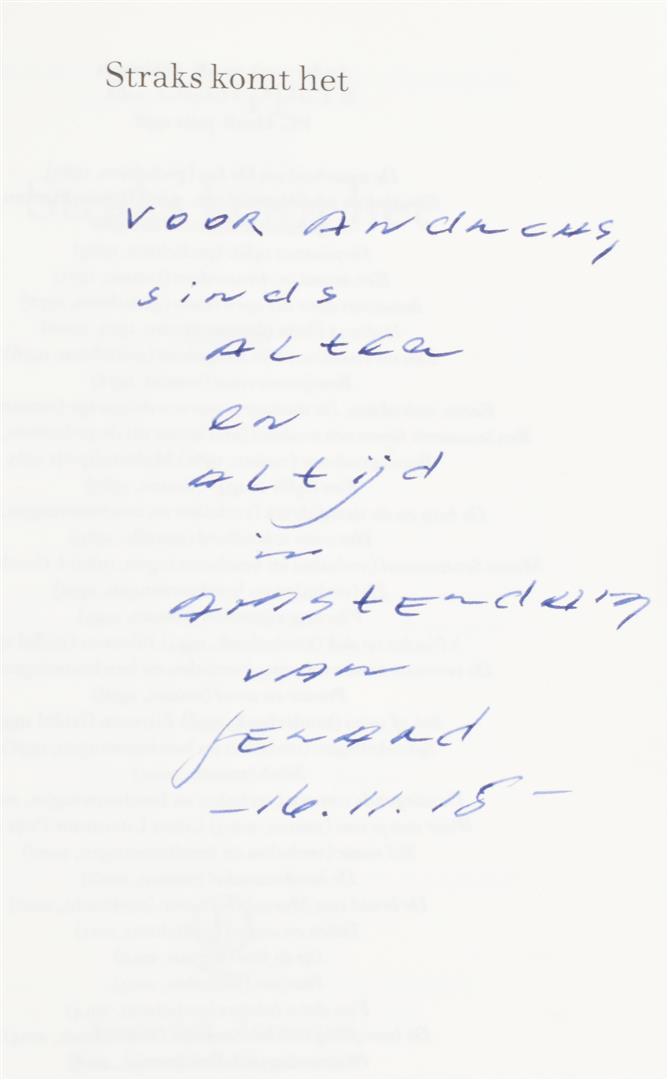 Straks komt het
VOOR ANdREAS,
sinds
ALtEA
en
ALtijd
in
AMStERdAM
VAN
GERARd
– 16.11.18 –